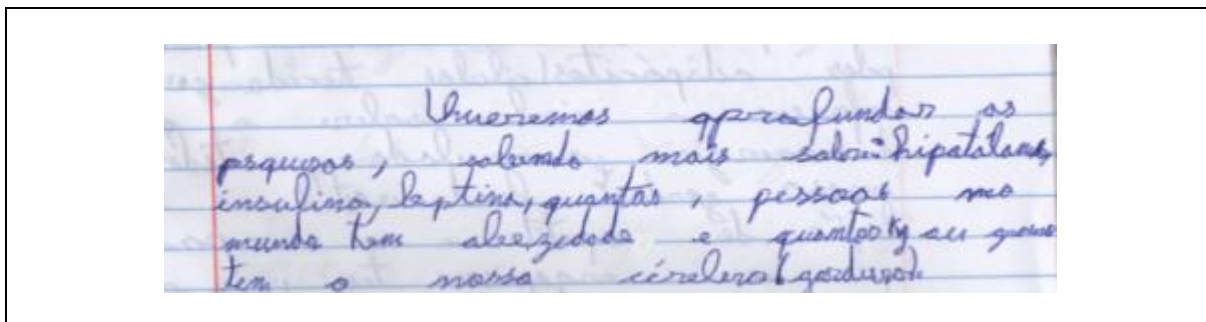 Queremos aprofundar as
pesquisas, sabendo mais sobre: hipatalamo,
insulina, leptina, quantas, pessoas no
mundo tem abezedade e quantos kg ou gramas
tem o nosso cérebero (gordura).